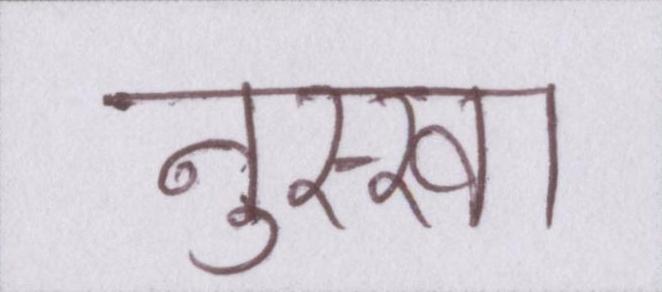 नुस्खा